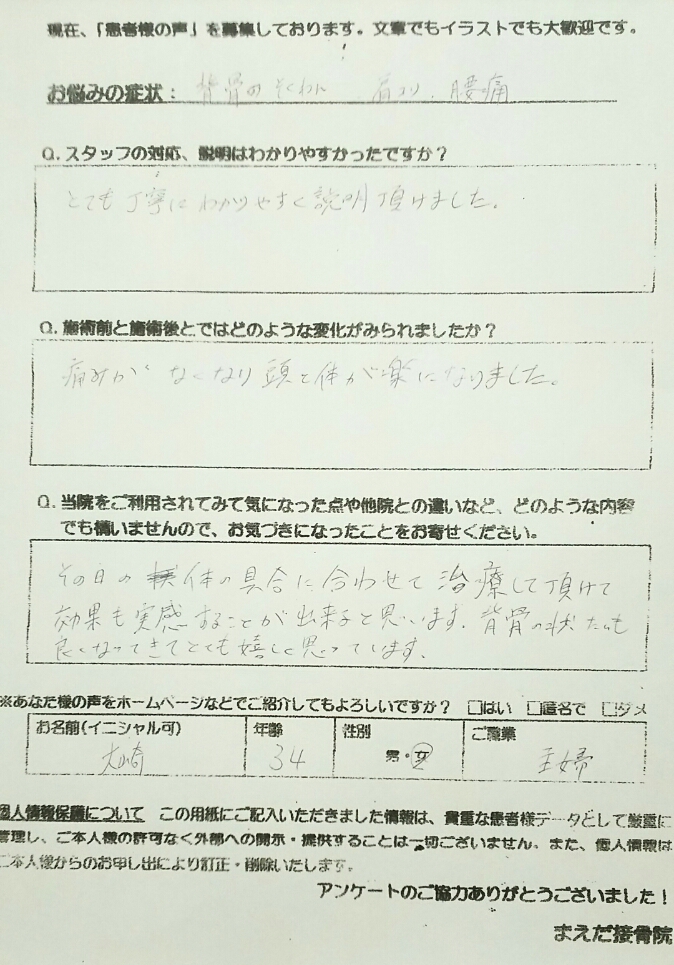 現在、「患者様の声」を募集しております。文章でもイラストでも大歓迎です。
お悩みの症状： 背骨のそくわん 肩コリ、腰痛
Q. スタッフの対応、説明はわかりやすかったですか？
とても丁寧にわかりやすく説明頂けました。
Q. 施術前と施術後とではどのような変化がみられましたか？
痛みがなくなり頭と体が楽になりました。
Q. 当院をご利用されてみて気になった点や他院との違いなど、どのような内容
でも構いませんので、お気づきになったことをお寄せください。
その日の体の具合に合わせて治療して頂けて
効果も実感することが出来ると思います。背骨の状たいも
良くなってきてとても嬉しく思っています。
※あなた様の声をホームページなどでご紹介してもよろしいですか？ □はい □匿名で □ダメ
お名前(イニシャル可) 年齢 性別 ご職業
大崎 34 男・女 主婦
個人情報保護について この用紙にご記入いただきました情報は、貴重な患者様データとして厳重に
管理し、ご本人様の許可なく外部への開示・提供することは一切ございません。また、個人情報は
ご本人様からのお申し出により訂正・削除いたします。
アンケートのご協力ありがとうございました！
まえだ接骨院